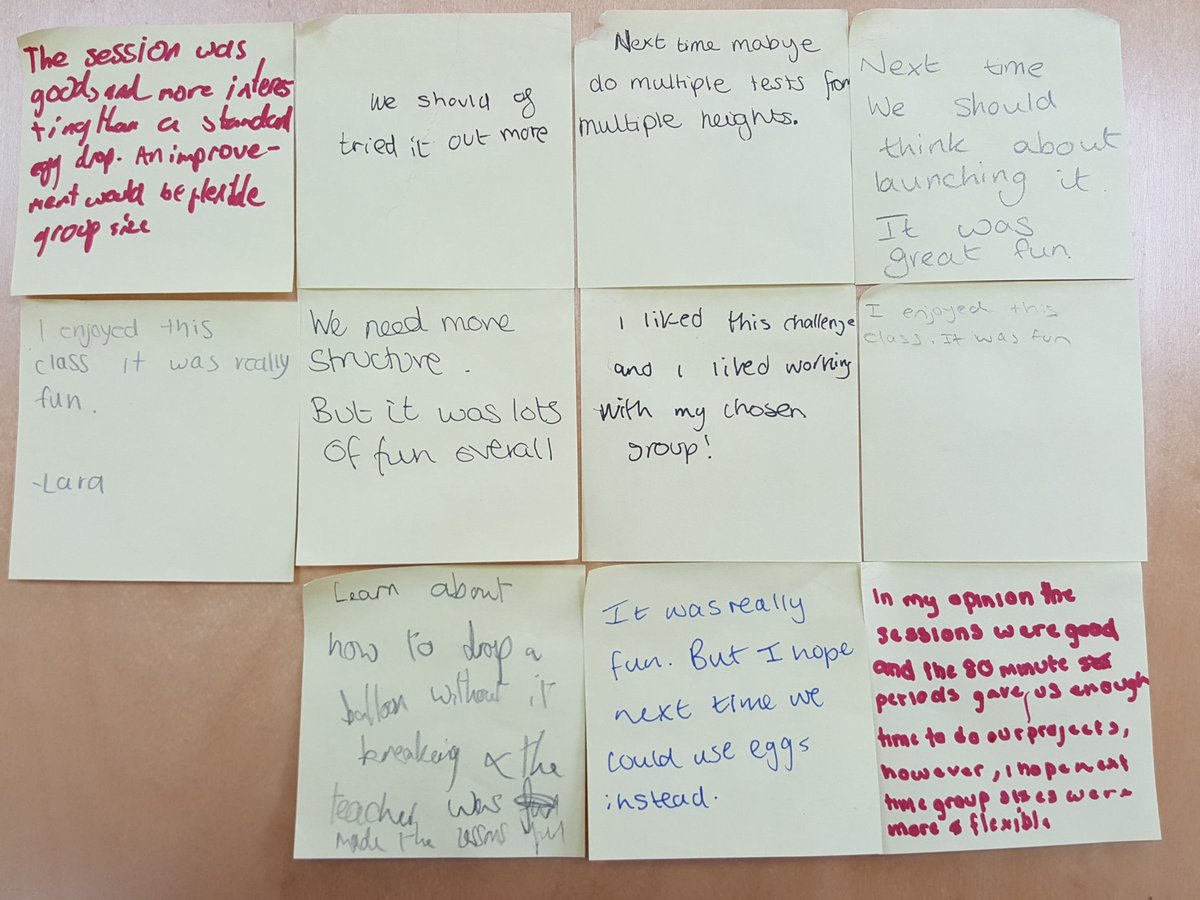 The session was
goods and more interes
ting than a standard
egg drop. An improve-
ment would be flexible
group size
We should of
tried it out more
Next time mabye
do multiple tests from
multiple heights.
Next time
We should
think about
launching it.
It was
great fun.
I enjoyed this
class it was really
fun.
-Lara
We need more
structure.
But it was lots
of fun overall
I liked this challenge
and I liked working
with my chosen
group!
I enjoyed this
class. It was fun
Learn about
how to drop a
balloon without it
breaking & the
teacher was
made the lessons fun
It was really
fun. But I hope
next time we
could use eggs
instead.
In my opinion the
sessions were good
and the 80 minute
periods gave us enough
time to do our projects,
however, i hope next
time group sises were
more flexible